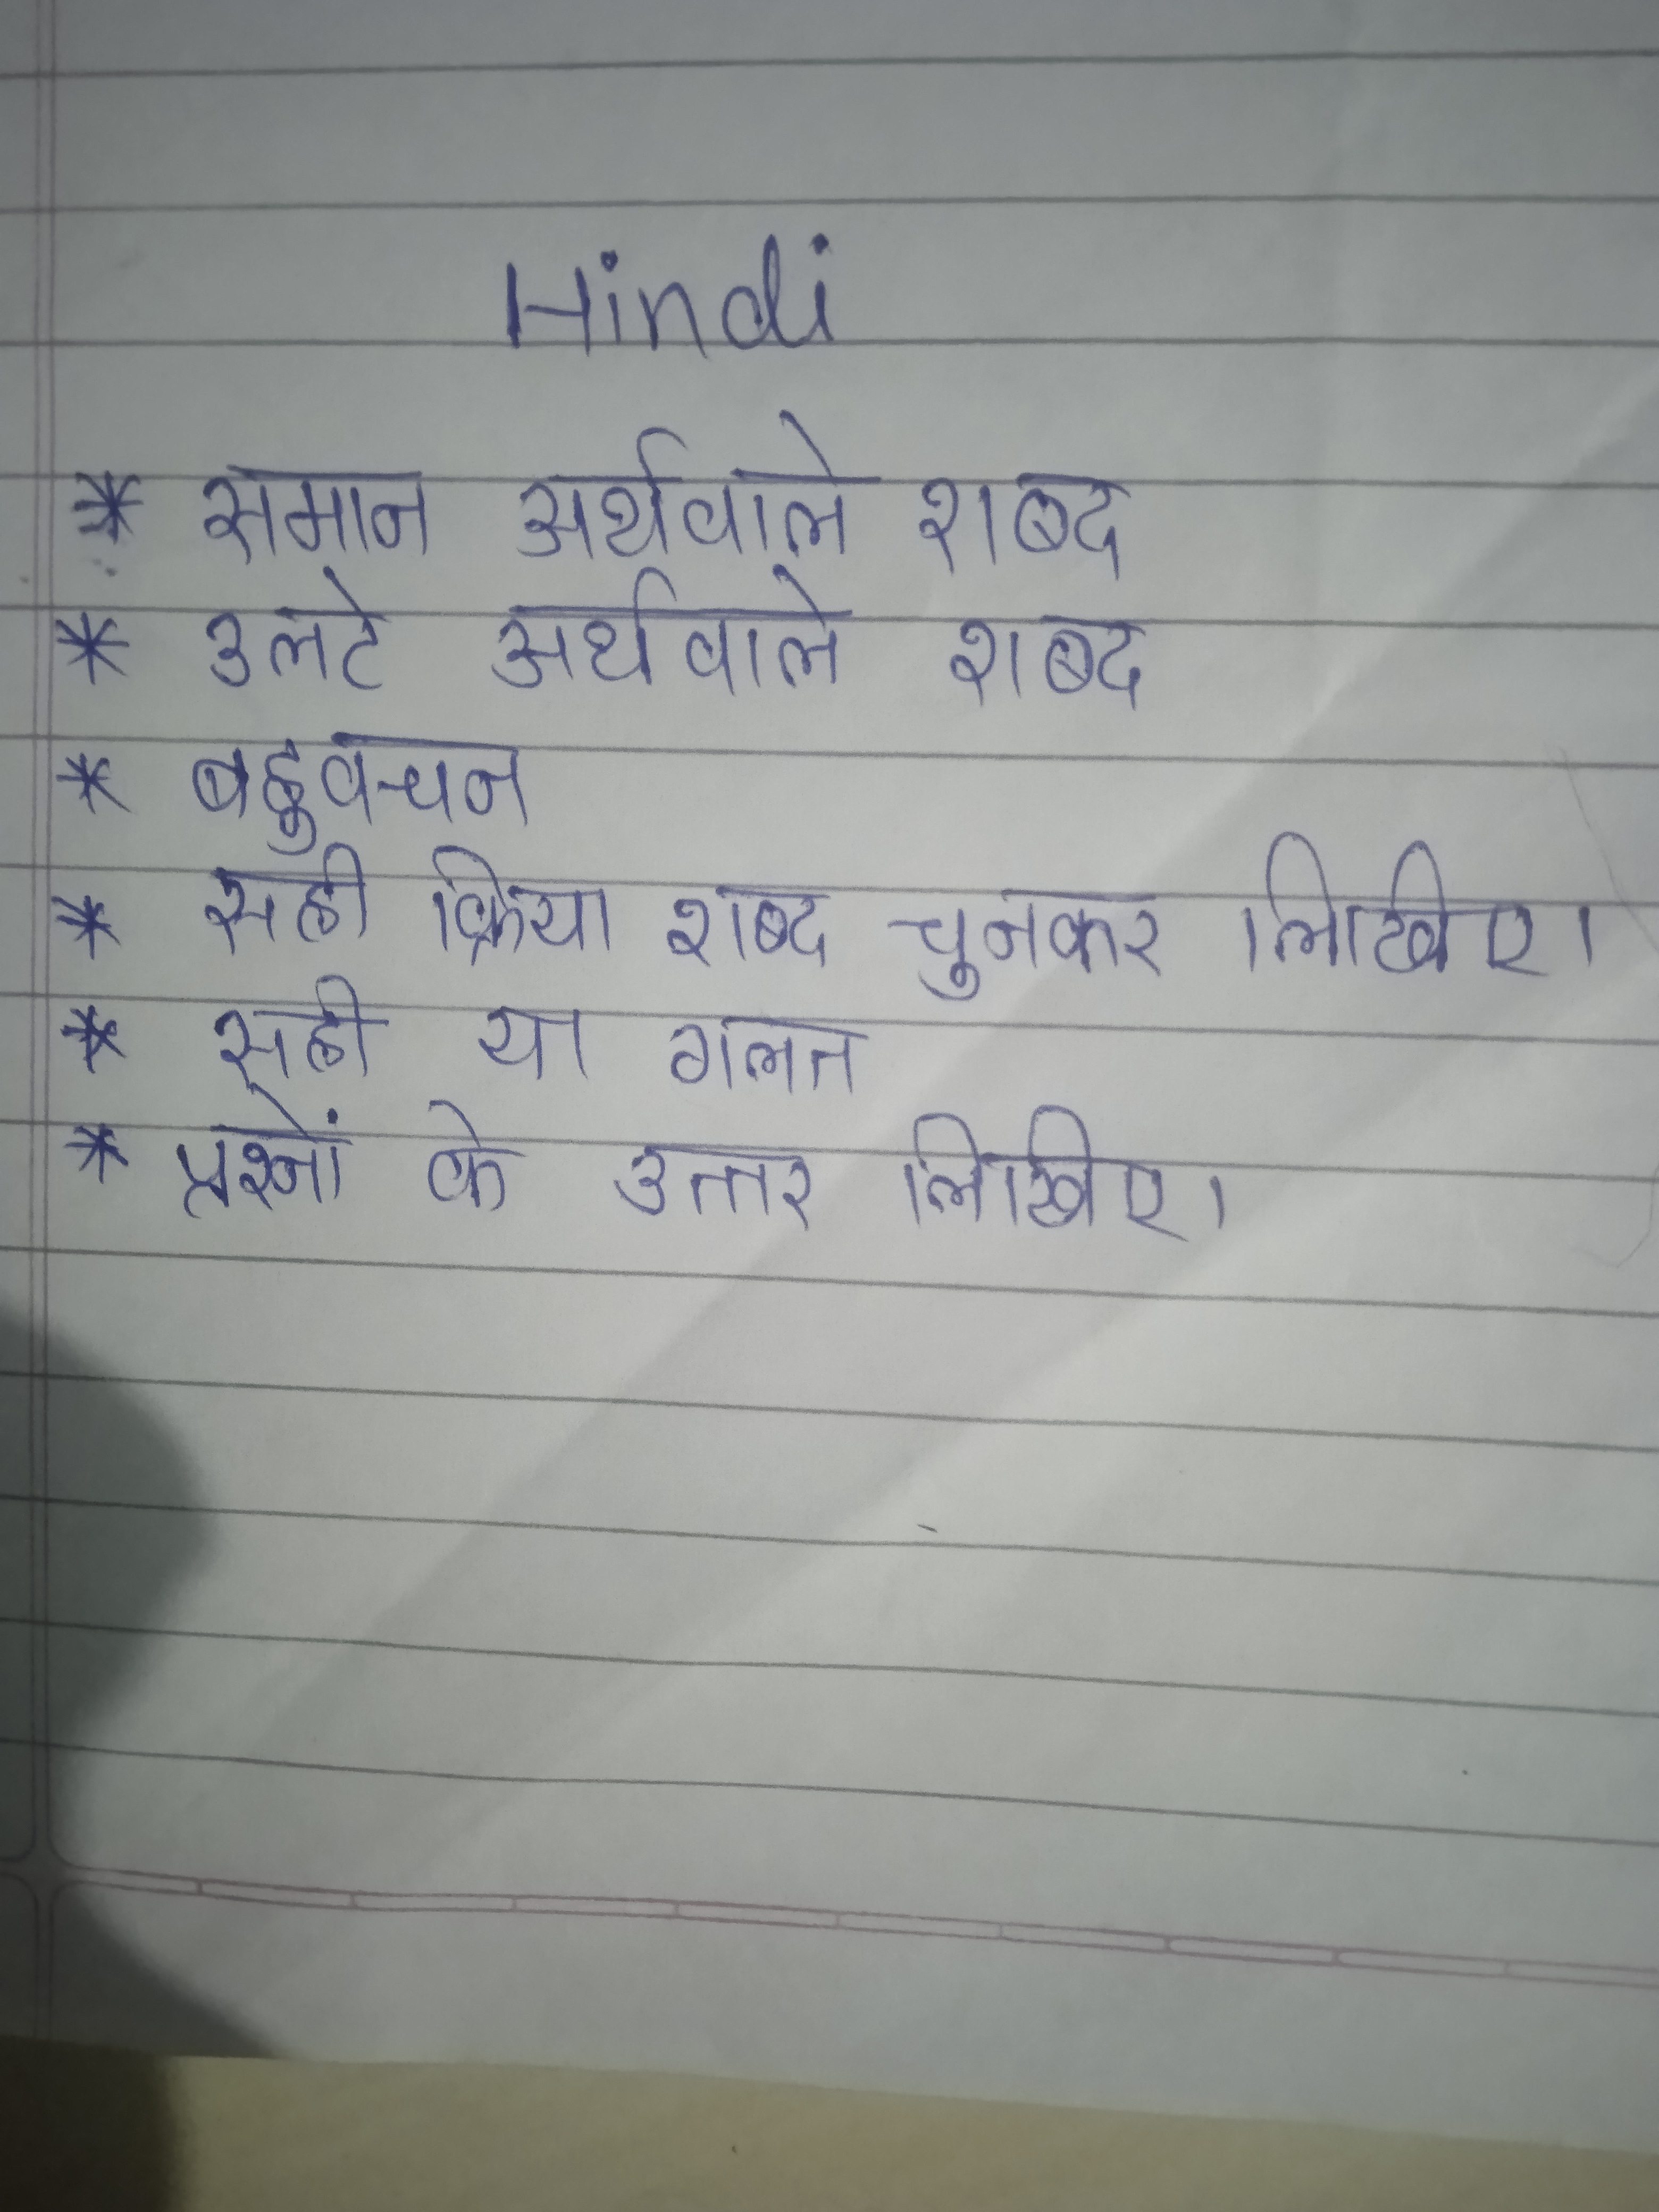 Hindi
* समान अर्थवाले शब्द
* उलटे अर्थवाले शब्द
* बहुवचन
* सही क्रिया शब्द चुनकर लिखिए।
* सही या गलत
* प्रश्नों के उत्तर लिखिए।